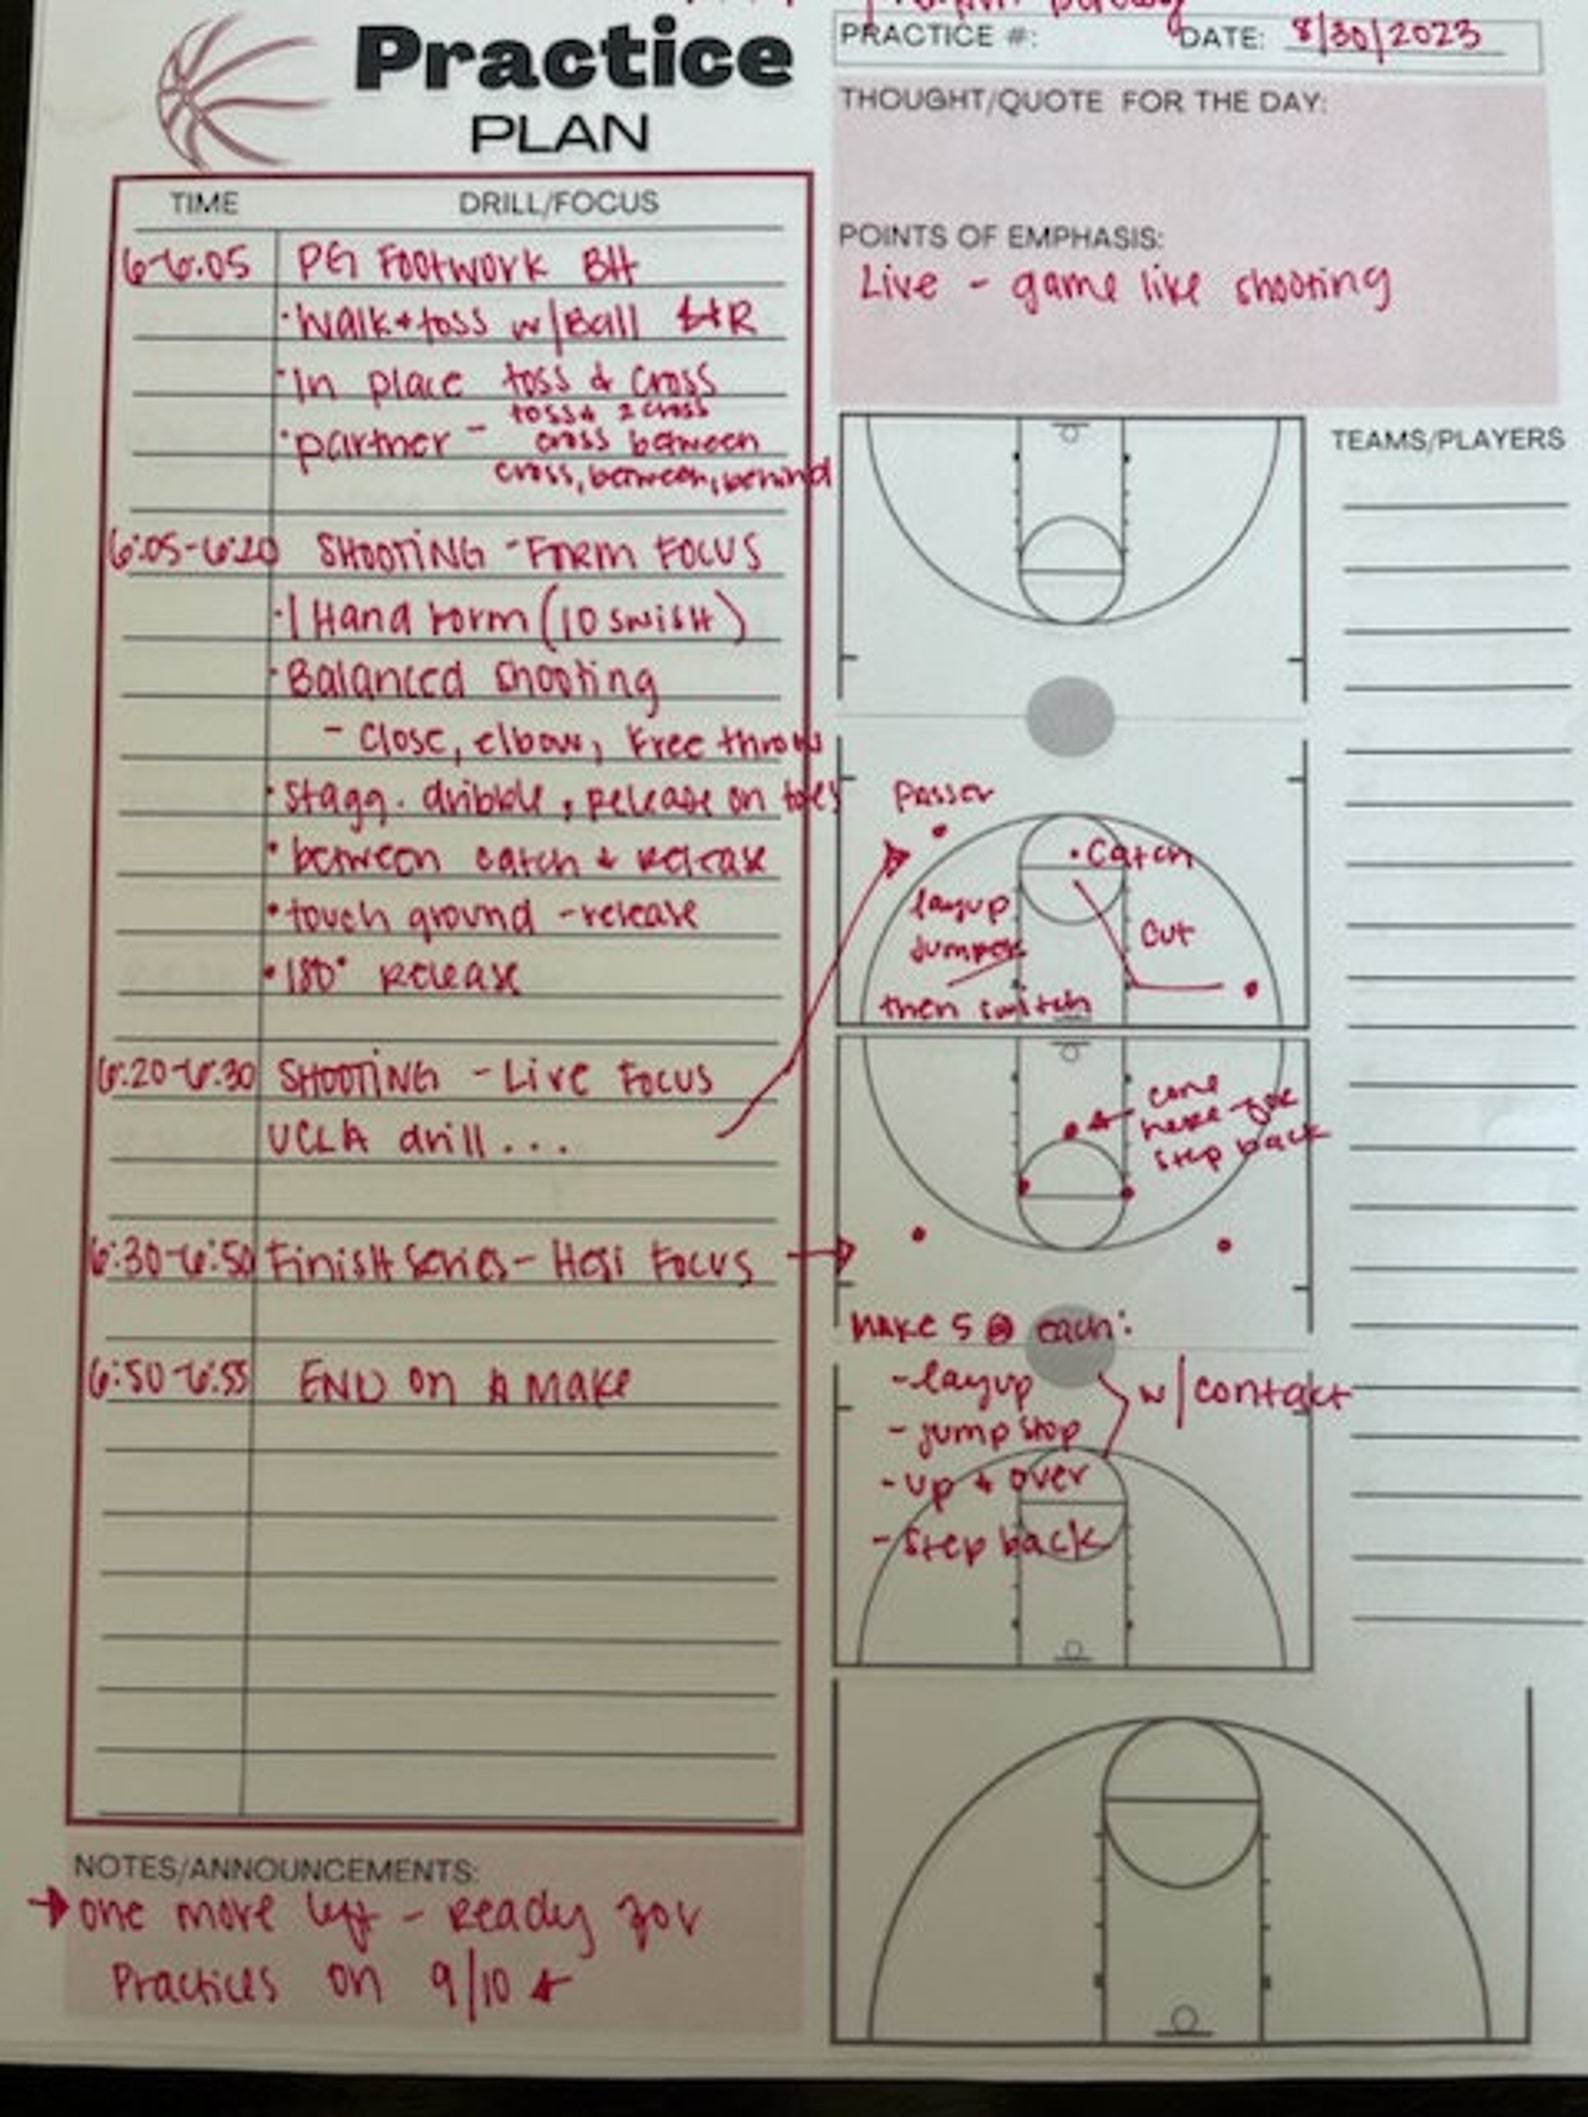 Practice
PLAN
PRACTICE #:
DATE: 8/30/2023
THOUGHT/QUOTE FOR THE DAY:
POINTS OF EMPHASIS:
Live - game like shooting
TIME DRILL/FOCUS
6-6:05 PG Footwork BH
· Walk + toss w/Ball L+R
· In place toss & Cross
toss + 2 cross
· partner - cross between
cross, between, behind
6:05-6:20 SHOOTING - Form FOCUS
· 1 Hand Form (10 SWISH)
· Balanced Shooting
- Close, elbow, Free throws
· Stagg. dribble, release on toes
· between catch & release
· touch ground - release
· 180° Release
6:20-6:30 SHOOTING - Live Focus
UCLA drill...
6:30-6:50 Finish Series - Hesi Focus
6:50-6:55 END on A Make
NOTES/ANNOUNCEMENTS:
→ one more left - Ready for
Practices on 9/10
TEAMS/PLAYERS
Passer
· Catch
layup
Jumper
Cut
then switch
come
here for
step back
Make 5 @ each:
- layup
w/contact
- jump stop
- up + over
- Step back